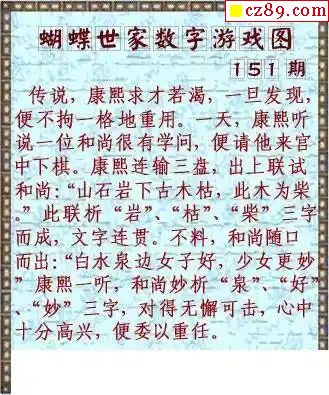 cz89.com
蝴蝶世家数字游戏图
151期
传说，康熙求才若渴，一旦发现，
便不拘一格地重用。一天，康熙听
说一位和尚很有学问，便请他来宫
中下棋。康熙连输三盘，出上联试
和尚：“山石岩下古木枯，此木为柴
。”此联析“岩”、“枯”、“柴”三字
而成，文字连贯。不料，和尚随口
而出：“白水泉边女子好，少女更妙
”康熙一听，和尚妙析“泉”、“好”
、“妙”三字，对得无懈可击，心中
十分高兴，便委以重任。